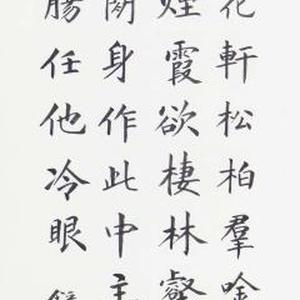 花軒松柏羣吟
煙霞欲棲林壑
身作此中主
腸任他冷眼